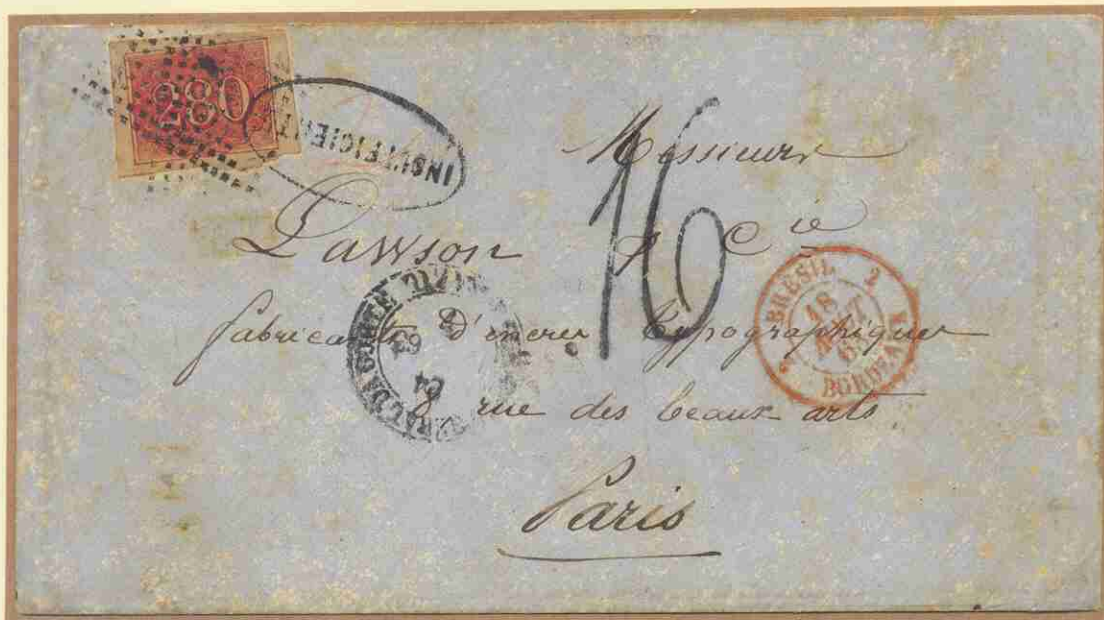 280
INSUFFICIENT
16
Messieurs
Lawson & Cie
fabricants d'encres typographiques
8 rue des beaux arts
Paris
BRÉSIL 2
18
BORDEAUX